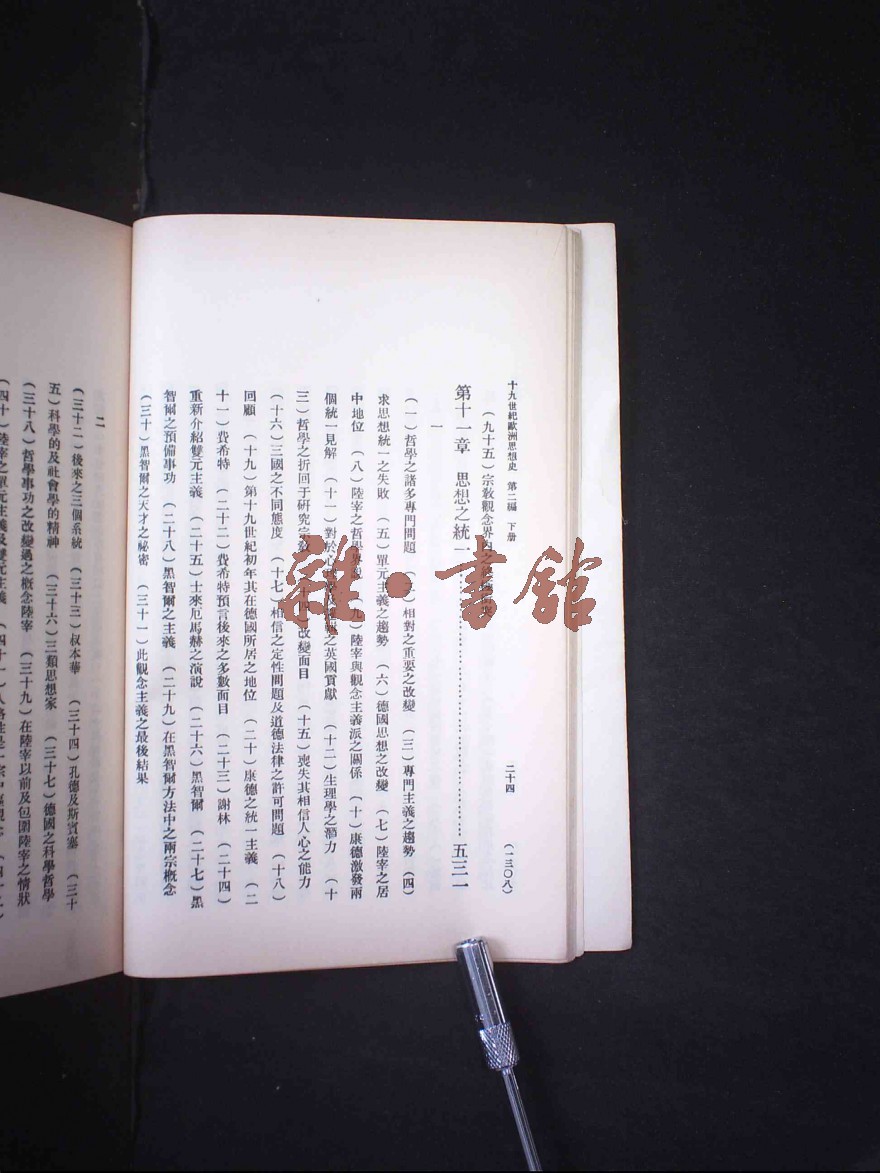 十九世紀歐洲思想史 第二編 下册 二十四 (一三〇八)
(九十五)宗教觀念界內之
第十一章 思想之統一 五三一
一
(一)哲學之諸多專門問題 (二)相對之重要之改變 (三)專門主義之趨勢 (四)
求思想統一之失敗 (五)單元主義之趨勢 (六)德國思想之改變 (七)陸宰之居
中地位 (八)陸宰之哲學界說 (九)陸宰與觀念主義派之關係 (十)康德激發兩
個統一見解 (十一)對於心 之英國貢獻 (十二)生理學之潛力 (十
三)哲學之折回于研究宗教 (十四)改變面目 (十五)喪失其相信人心之能力
(十六)三國之不同態度 (十七)相信之定性問題及道德法律之許可問題 (十八)
回顧 (十九)第十九世紀初年其在德國所居之地位 (二十)康德之統一主義 (二
十一)費希特 (二十二)費希特預言後來之多數面目 (二十三)謝林 (二十四)
重新介紹雙元主義 (二十五)士來厄馬赫之演說 (二十六)黑智爾 (二十七)黑
智爾之預備事功 (二十八)黑智爾之主義 (二十九)在黑智爾方法中之兩宗概念
(三十)黑智爾之天才之祕密 (三十一)此觀念主義之最後結果
二
(三十二)後來之三個系統 (三十三)叔本華 (三十四)孔德及斯賓塞 (三十
五)科學的及社會學的精神 (三十六)三類思想家 (三十七)德國之科學哲學
(三十八)哲學事功之改變過之概念陸宰 (三十九)在陸宰以前及包圍陸宰之情狀
(四十)陸宰之單元主義及雙元主義
雜·書館